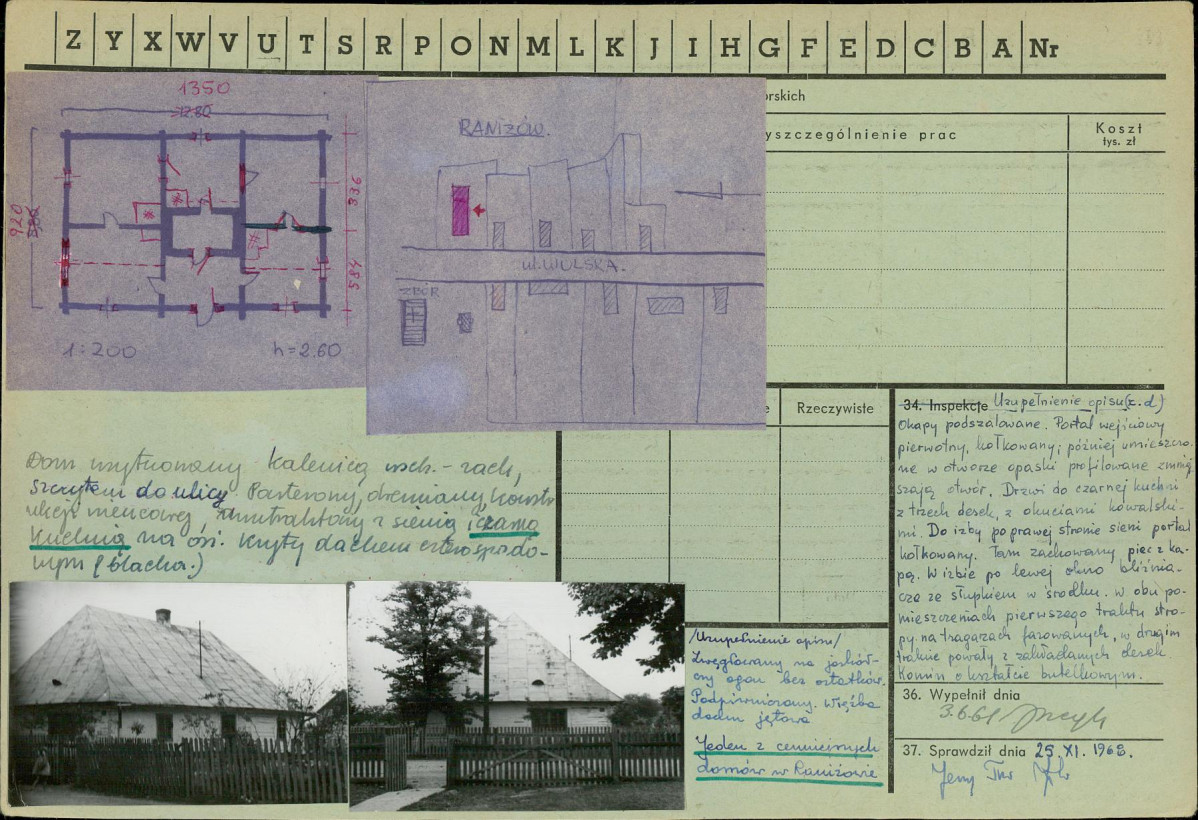 Z Y X W V U T S R P O N M L K J I H G F E D C B A Nr
1350
12.80
920
336
584
1:200
h=2.60
RANIŻÓW.
ul. WOLSKA.
ZBÓR
órskich
yszczególnienie prac
Koszt
tys. zł
e
Rzeczywiste
Dom usytuowany kalenicą wsch.-zach,
szczytem do ulicy. Parterowy, drewniany, konstr
ukcji wieńcowej, z sienią i czarną
kuchnią na osi. Kryty dachem czterospado-
wym (blacha.)
/Uzupełnienie opisu/
Zwęgłowany na jaskół-
czy ogon bez ostatków.
Podpiwniczony. Więźba
dachu jętowa
Jeden z cenniejszych
domów w Raniżowie
34. Inspekcje Uzupełnienie opisu (c.d)
Okapy podszalowane. Portal wejściowy
pierwotny, kołkowany; później umieszczo-
ne w otworze opaski profilowane zmniej
szają otwór. Drzwi do czarnej kuchni
z trzech desek, z okuciami kowalski-
mi. Do izby po prawej stronie sieni portal
kołkowany. Tam zachowany piec z ka-
pą. W izbie po lewej okno bliźnia-
cze ze słupkiem w środku. W obu po-
mieszczeniach pierwszego traktu stro-
py na tragarzach fazowanych, w drugim
trakcie powały z zakładanych desek.
Komin o kształcie butelkowym.
36. Wypełnił dnia
3.6.61
37. Sprawdził dnia 25.XI.1968.
Jerzy Tur